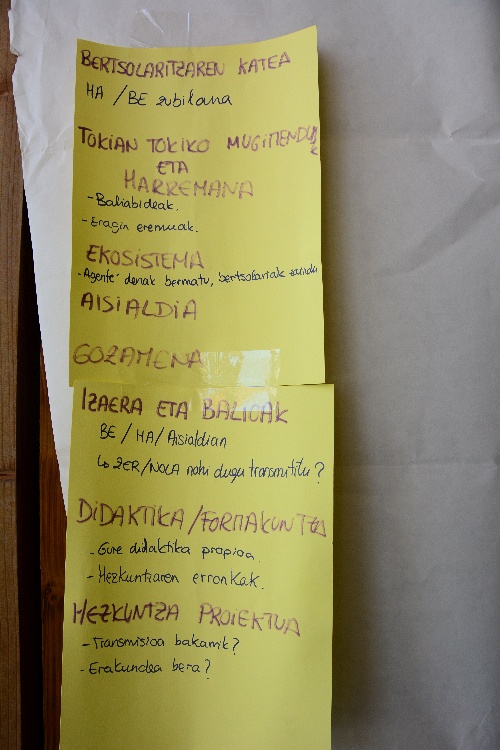 BERTSOLARITZAREN KATEA
HA / BE zubilana
TOKIAN TOKIKO MUGIMENDUAK
ETA
HARREMANA
- Baliabideak.
- Eragin eremuak.
EKOSISTEMA
- Agente denak bermatu, bertsolariak zaindu
AISIALDIA
GOZAMENA
IZAERA ETA BALIOAK
BE / HA / Aisialdian
↳ ZER/NOLA nahi dugu transmititu?
DIDAKTIKA/FORMAKUNTZA
- Gure didaktika propioa.
- Hezkuntzaren erronkak.
HEZKUNTZA PROIEKTUA
- Transmisioa bakarrik?
- Erakundea bera?